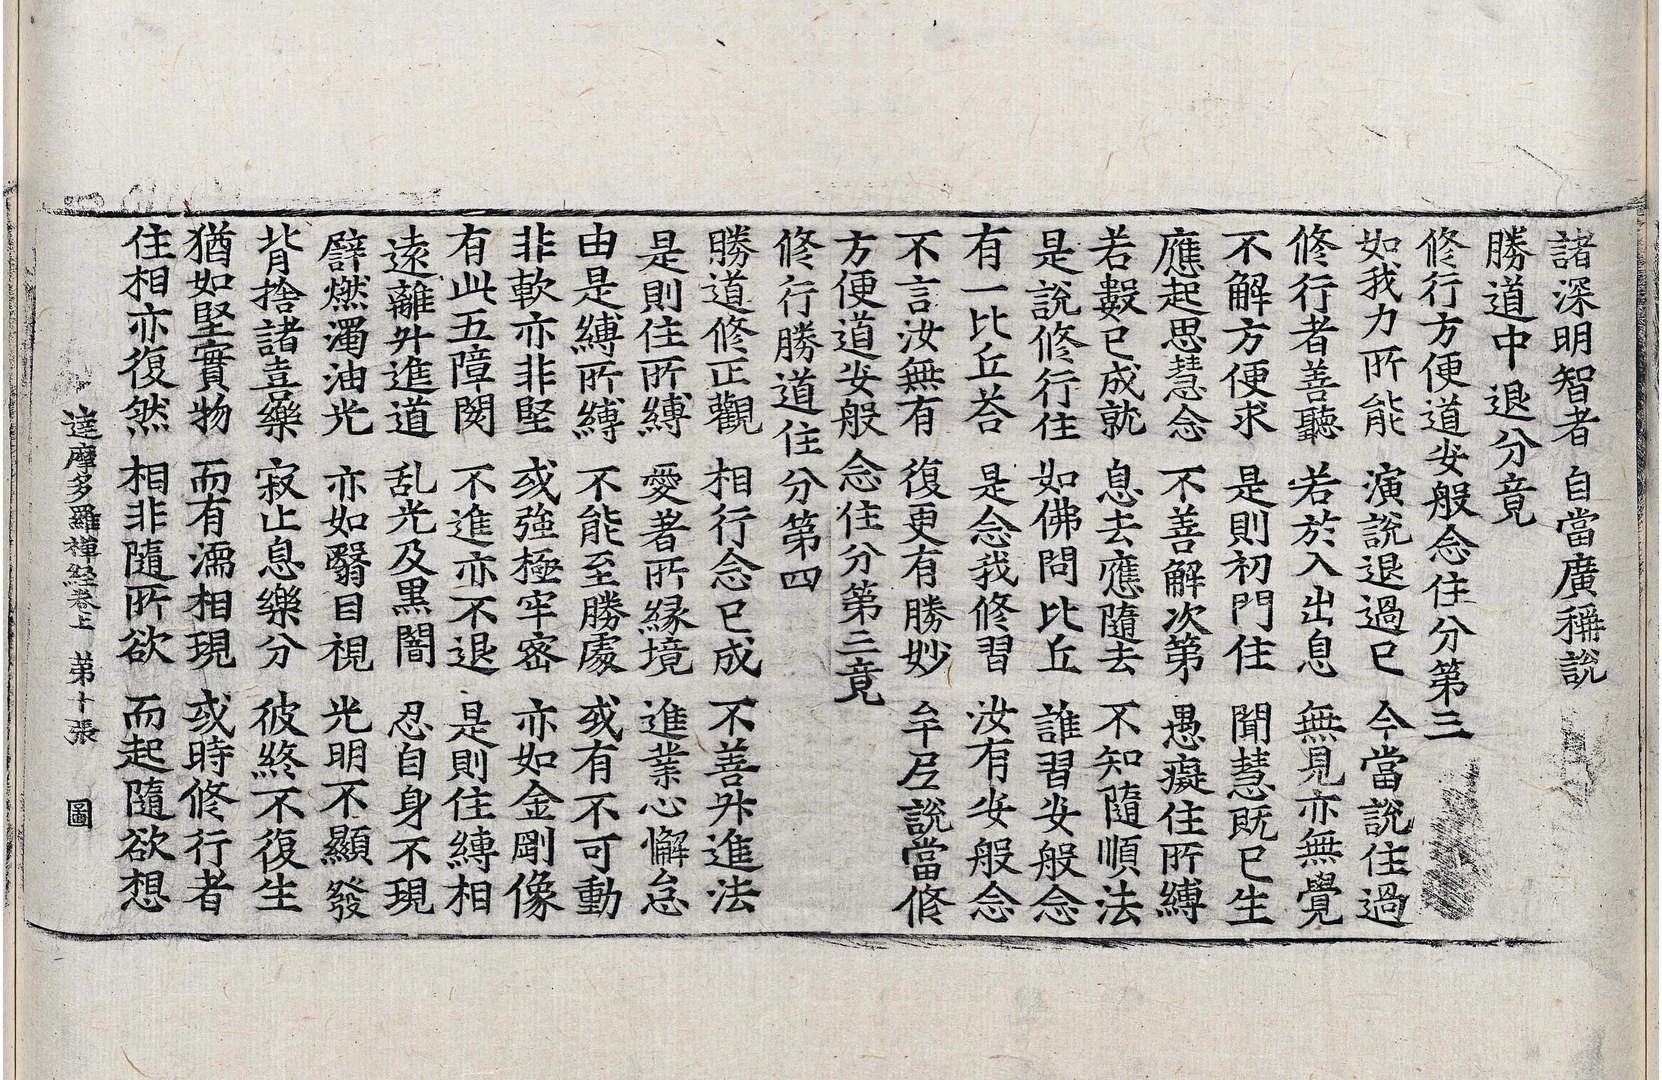 諸深明智者　自當廣稱說
勝道中退分竟
修行方便道安般念住分第三
如我力所能　演說退過已　今當說住過
修行者善聽　若於入出息　無見亦無覺
不解方便求　是則初門住　聞慧既已生
應起思慧念　不善解次第　愚癡住所縛
若數已成就　息去應隨去　不知隨順法
是說修行住　如佛問比丘　誰習安般念
有一比丘荅　是念我修習　汝有安般念
不言汝無有　復更有勝妙　牟尼說當修
方便道安般念住分第三竟
修行勝道住分第四
勝道修正觀　相行念已成　不善升進法
是則住所縛　愛著所緣境　進業心懈怠
由是縛所縛　不能至勝處　或有不可動
非軟亦非堅　或強極牢密　亦如金剛像
有此五障閡　不進亦不退　是則住縛相
遠離升進道　乱光及黑闇　忍自身不現
譬燃濁油光　亦如翳目視　光明不顯發
背捨諸喜樂　寂止息樂分　彼終不復生
猶如堅實物　而有濡相現　或時修行者
住相亦復然　相非隨所欲　而起隨欲想
達摩多羅禪経卷上　第十張　圖